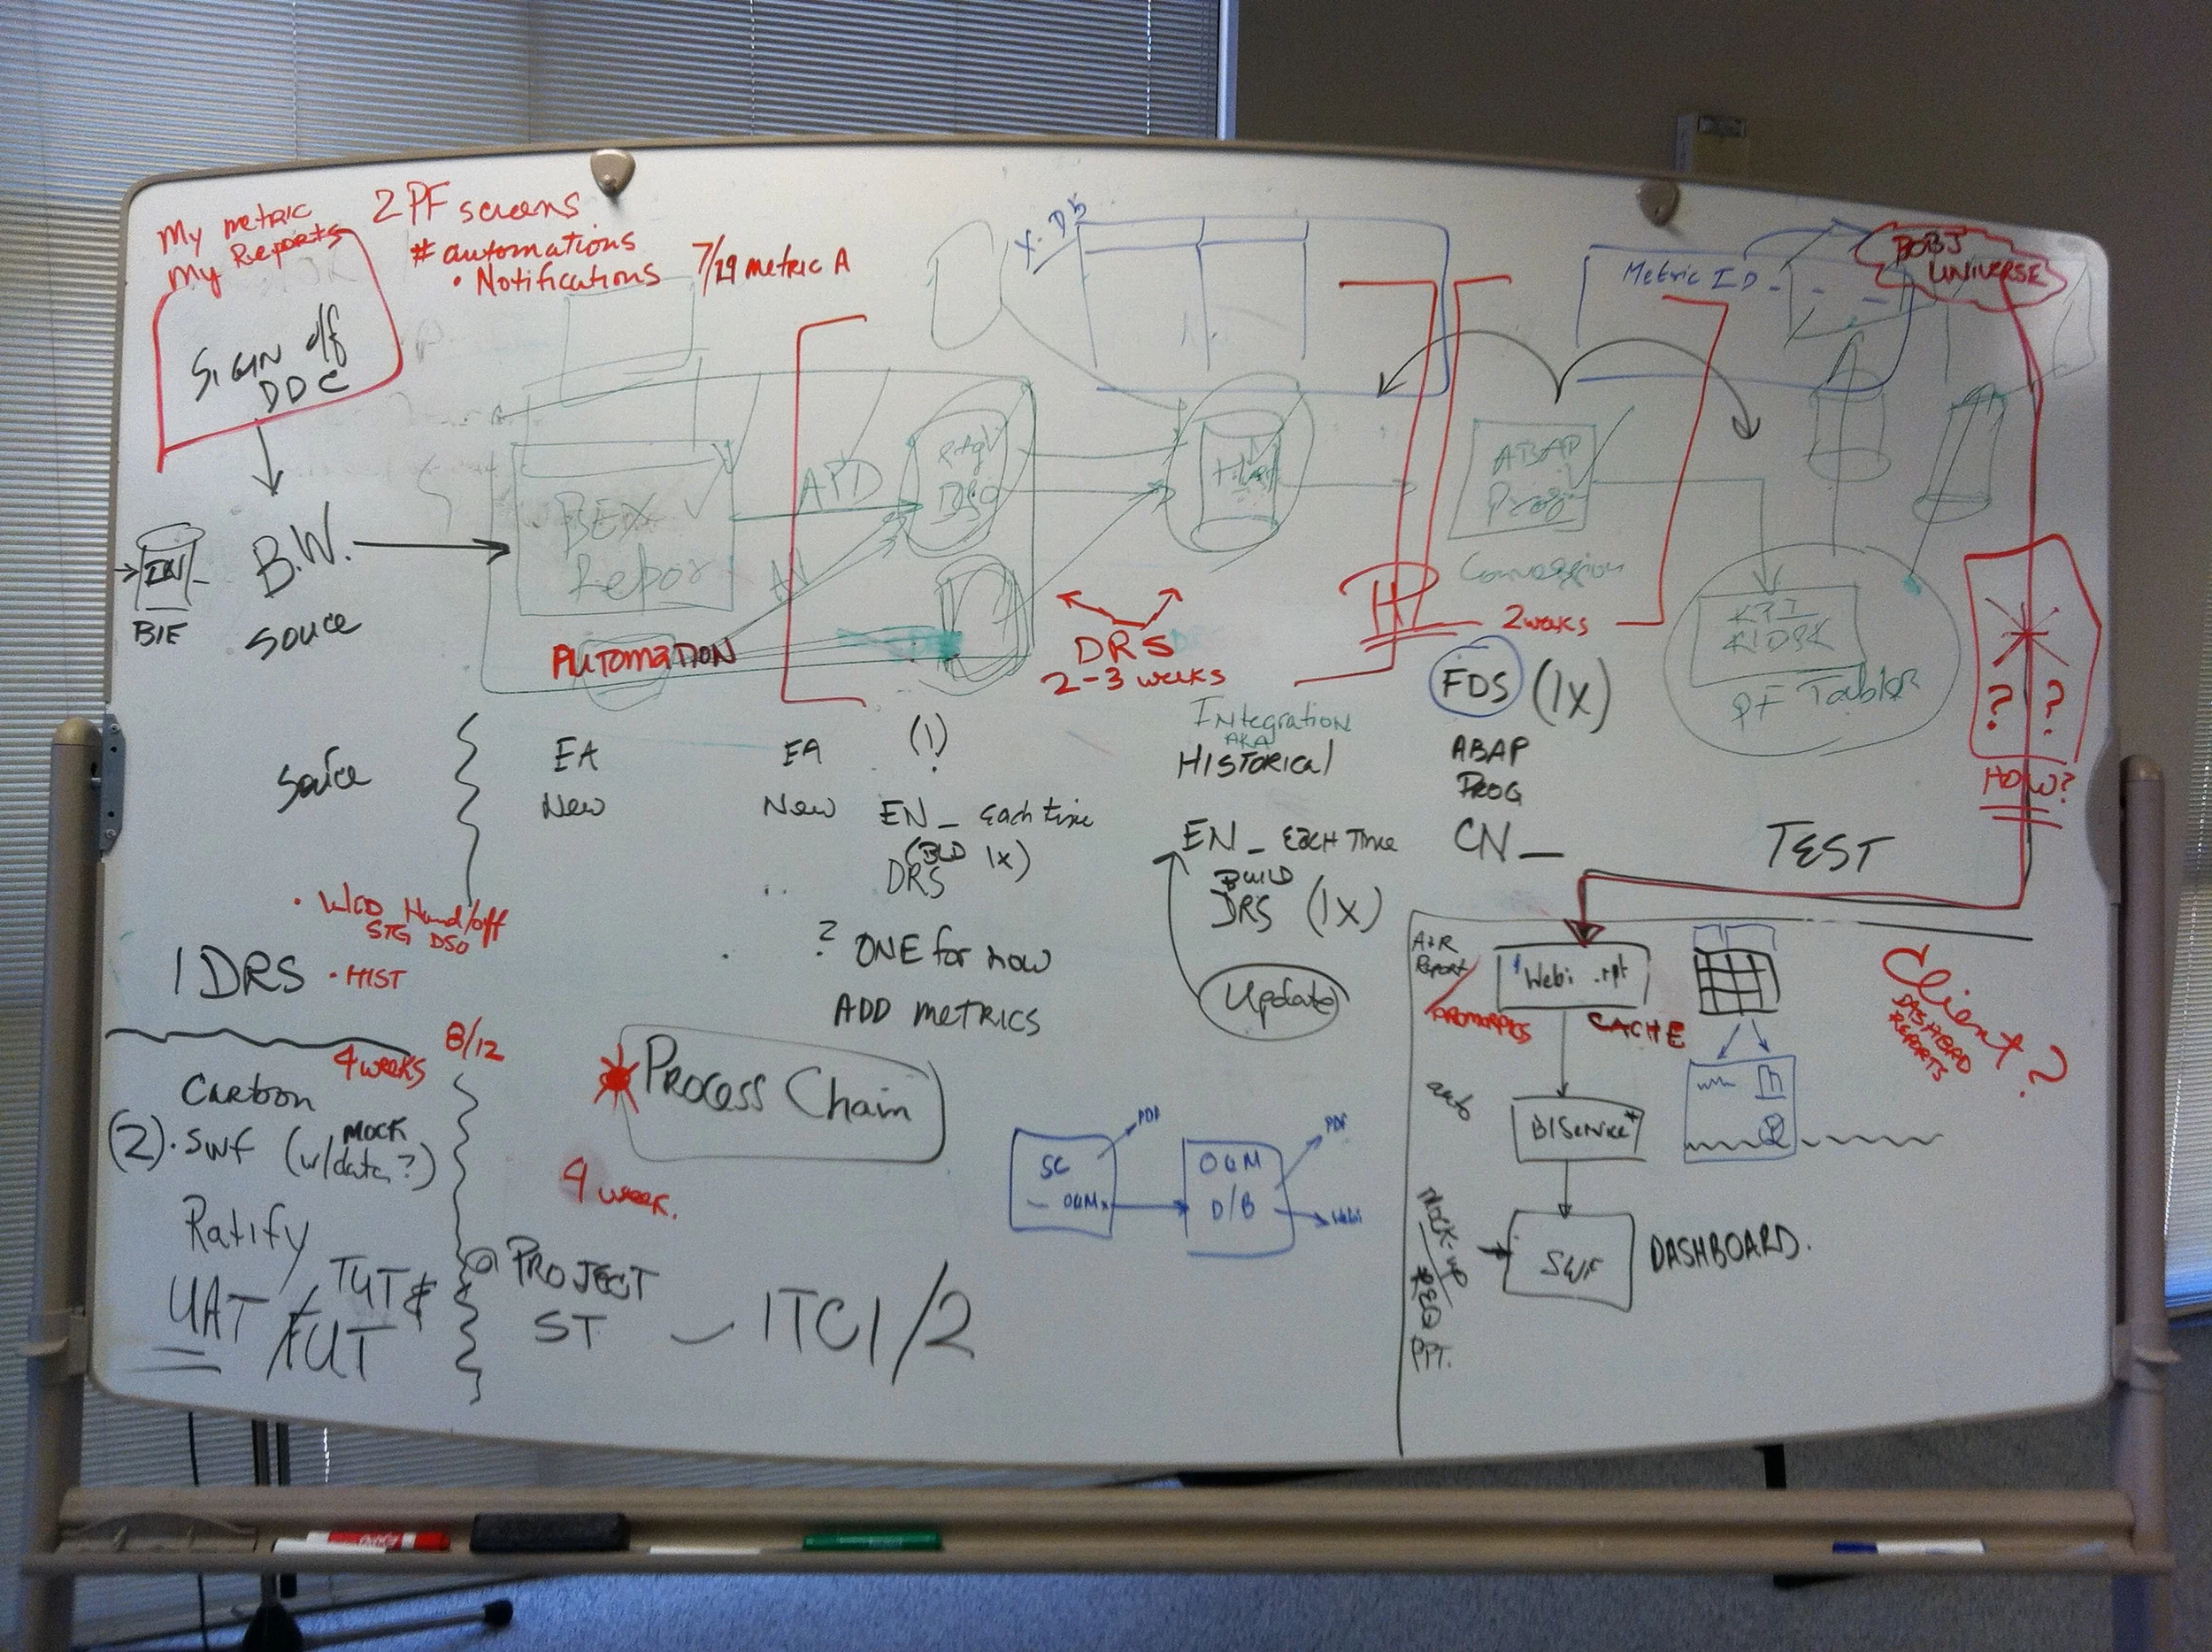 My metric
My Reports
2 PF screens
# automations
• Notifications
7/29 metric A
SIGN off
DOC
X-Db
Metric ID
BOBJ
UNIVERSE
BIE
B.W.
Souce
BEX
Repor
APD
DSO
Hist
ABAP
Prog
Conversion
KPI
KIOSK
PF Tables
AUTOMATION
DRS
2-3 weeks
2 weeks
FDS (1X)
ABAP
PROG
CN_
? ?
HOW?
TEST
Source
EA
New
EA
New
(!)
EN_ Each time
(BLD 1X)
DRS
Integration
AKA
HISTORICAL
EN_ EACH Time
BUILD
DRS (1X)
Update
? ONE for now
ADD METRICS
• WCD Hand/off
STG DSO
1 DRS • HIST
4 weeks
8/12
Carbon
(2). SWF (MOCK
w/data?)
Ratify
UAT / TUT &
FUT
Process Chain
4 week.
@ PROJECT
ST - ITC1/2
SC
PDF
D/B
PDF
Webi
Report
Webi .rpt
CACHE
BIService*
SWF
DASHBOARD.
MOCK-up
REQ
PPT.
Client?
DASHBOARD
REPORTS